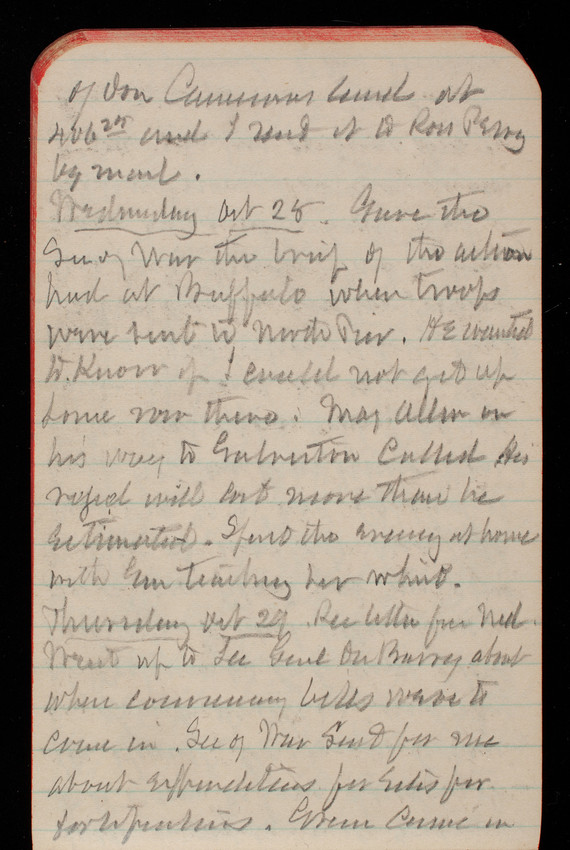 of Don Camerons land at
406 25 and I send it to Ross Perry
by mail.
Wednesday Oct 28. Gave the
Sec of War the brief of the action
had at Buffalo when troops
were sent to North Pier. He wanted
to know if I could not get up
some row there. Maj Allen on
his way to Galveston called His
will cost more than he
estimated. Spent the evening at home
with Em teaching her whist.
Thursday Oct 29. Rec letter from Ned.
Went up to see Genl DuBarry about
when conveniency bills were to
come in. Sec of War Sent for me
about expenditures for sites for
fortifications. Green came in